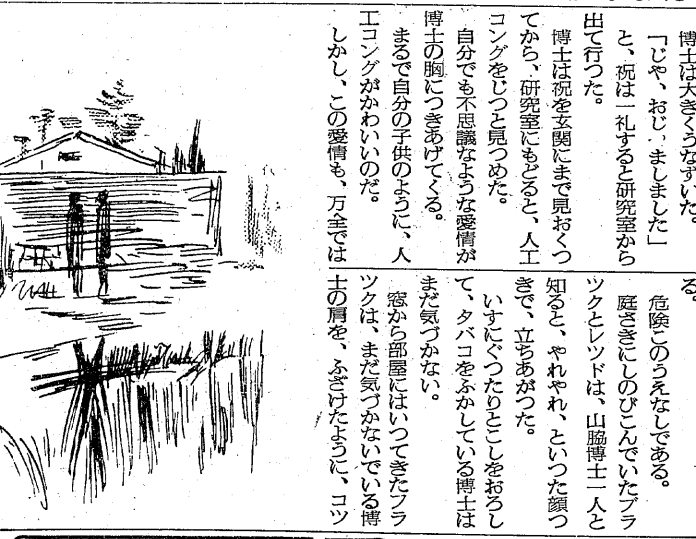 博士は大きくうなずいた。
「じや、おじ、ましました」
と、祝は一礼すると研究室から
出て行つた。
博士は祝を玄関にまで見おくつ
てから、研究室にもどると、人工
コングをじつと見つめた。
自分でも不思議なような愛情が
博士の胸につきあげてくる。
まるで自分の子供のように、人
工コングがかわいいのだ。
しかし、この愛情も、万全では
る。
危険このうえなしである。
庭さきにしのびこんでいたブラ
ツクとレツドは、山脇博士一人と
知ると、やれやれ、といつた顔つ
きで、立ちあがつた。
いすにぐつたりとこしをおろし
て、タバコをふかしている博士は
まだ気づかない。
窓から部屋にはいつてきたブラ
ツクは、まだ気づかないでいる博
士の肩を、ふざけたように、コツ